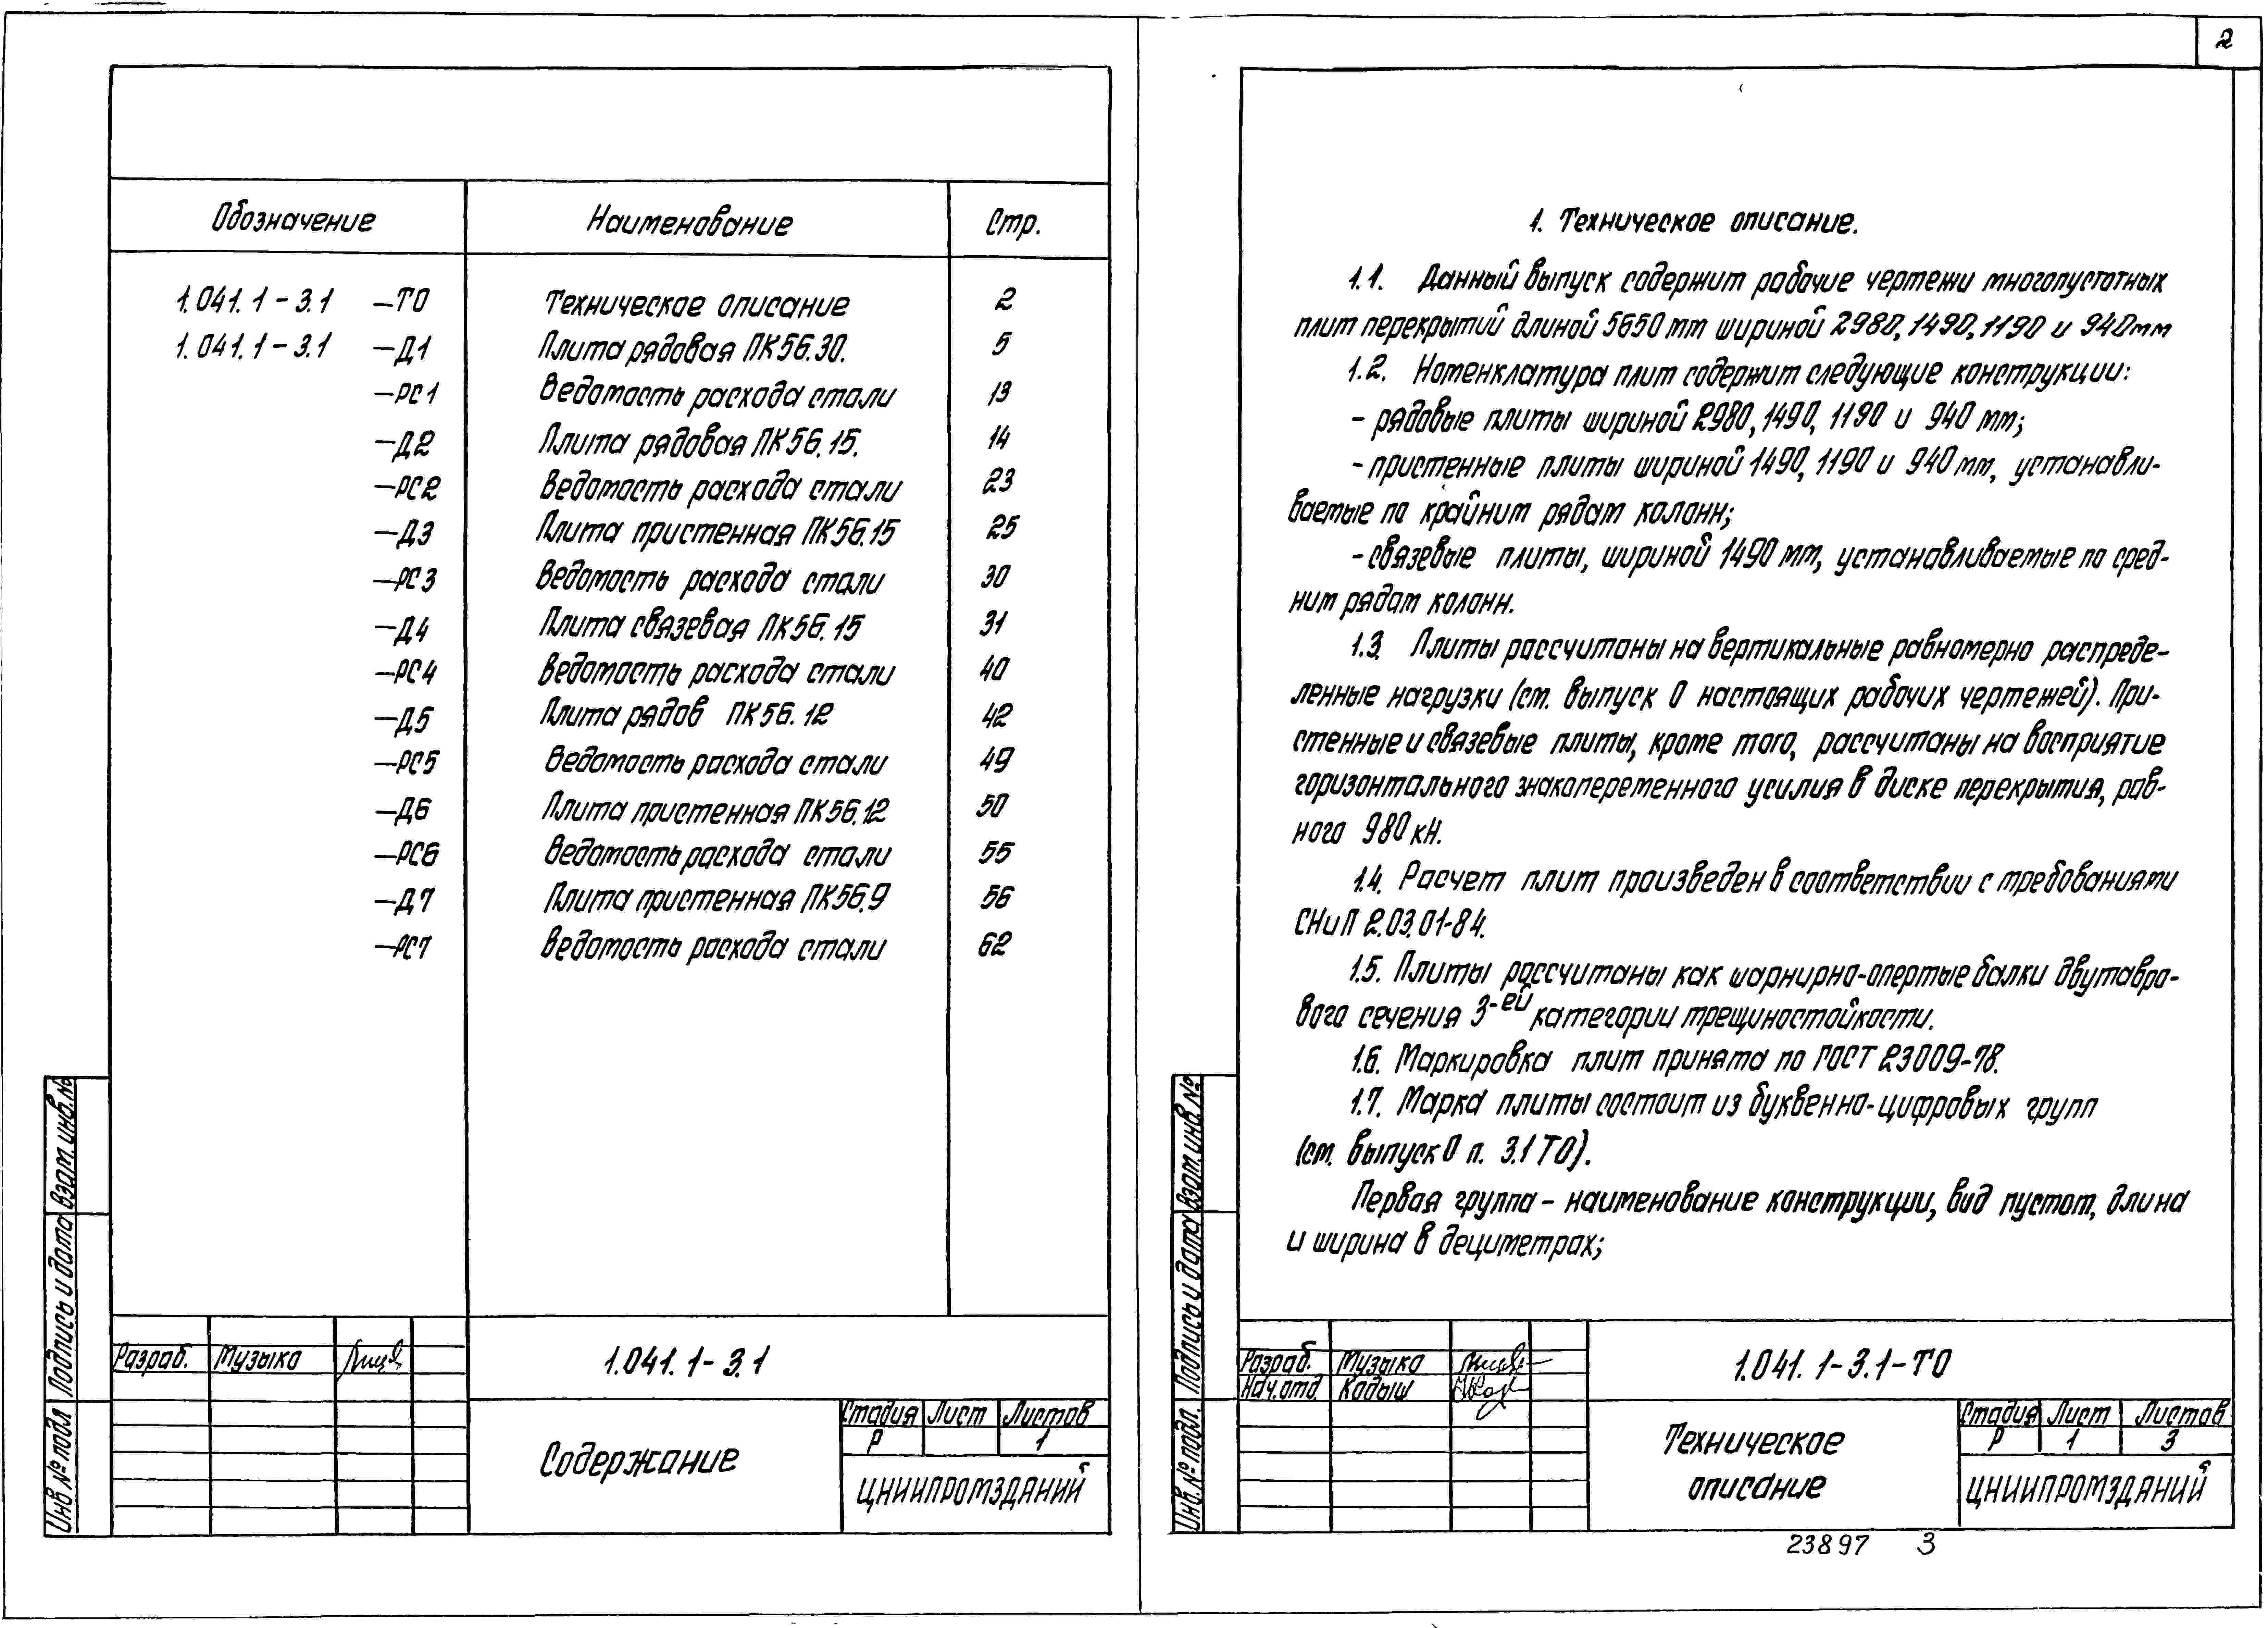 Обозначение Наименование Стр.
1.041.1-3.1 -ТО Техническое описание 2
1.041.1-3.1 -Д1 Плита рядовая ПК56.30. 5
-РС1 Ведомость расхода стали 13
-Д2 Плита рядовая ПК56.15. 14
-РС2 Ведомость расхода стали 23
-Д3 Плита пристенная ПК56.15 25
-РС3 Ведомость расхода стали 30
-Д4 Плита связевая ПК56.15 31
-РС4 Ведомость расхода стали 40
-Д5 Плита рядов ПК56.12 42
-РС5 Ведомость расхода стали 49
-Д6 Плита пристенная ПК56.12 50
-РС6 Ведомость расхода стали 55
-Д7 Плита пристенная ПК56.9 56
-РС7 Ведомость расхода стали 62
Взам. инв. №
Подпись и дата
Инв № подл
Разраб. Музыка
1.041.1-3.1
Содержание
Стадия Лист Листов
Р 1
ЦНИИПРОМЗДАНИЙ
2
1. Техническое описание.
1.1. Данный выпуск содержит рабочие чертежи многопустотных
плит перекрытий длиной 5650 mm шириной 2980, 1490, 1190 и 940 mm
1.2. Номенклатура плит содержит следующие конструкции:
- рядовые плиты шириной 2980, 1490, 1190 и 940 mm;
- пристенные плиты шириной 1490, 1190 и 940 mm, устанавли-
ваемые по крайним рядам колонн;
- связевые плиты, шириной 1490 mm, устанавливаемые по сред-
ним рядам колонн.
1.3. Плиты рассчитаны на вертикальные равномерно распреде-
ленные нагрузки (см. выпуск 0 настоящих рабочих чертежей). При-
стенные и связевые плиты, кроме того, рассчитаны на восприятие
горизонтального знакопеременного усилия в диске перекрытия, рав-
ного 980 кН.
1.4. Расчет плит произведен в соответствии с требованиями
СНиП 2.03.01-84.
1.5. Плиты рассчитаны как шарнирно-опертые балки двутавро-
вого сечения 3-ей категории трещиностойкости.
1.6. Маркировка плит принята по ГОСТ 23009-78.
1.7. Марка плиты состоит из буквенно-цифровых групп
(см. выпуск 0 п. 3.1 ТО).
Первая группа - наименование конструкции, вид пустот, длина
и ширина в дециметрах;
Взам. инв №
Подпись и дата
Инв. № подл.
Разраб. Музыка
Нач. отд. Кодыш
1.041.1-3.1-ТО
Техническое
описание
Стадия Лист Листов
Р 1 3
ЦНИИПРОМЗДАНИЙ
23897 3